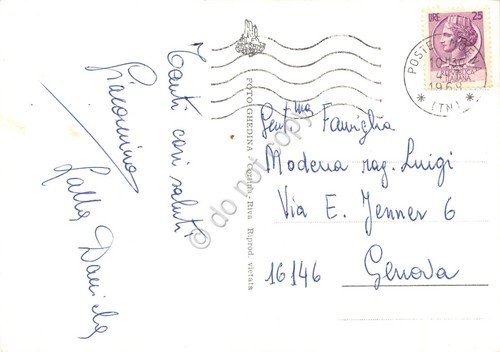 Tanti cari saluti
Giacomino
Galla Daniela
FOTO GHEDINA - Cortina - Riva Riprod. vietata
LIRE 25
POSTE
1968
(TN)
Gent.ma Famiglia
Modena rag. Luigi
Via E. Jenner 6
16146 Genova
do not copy